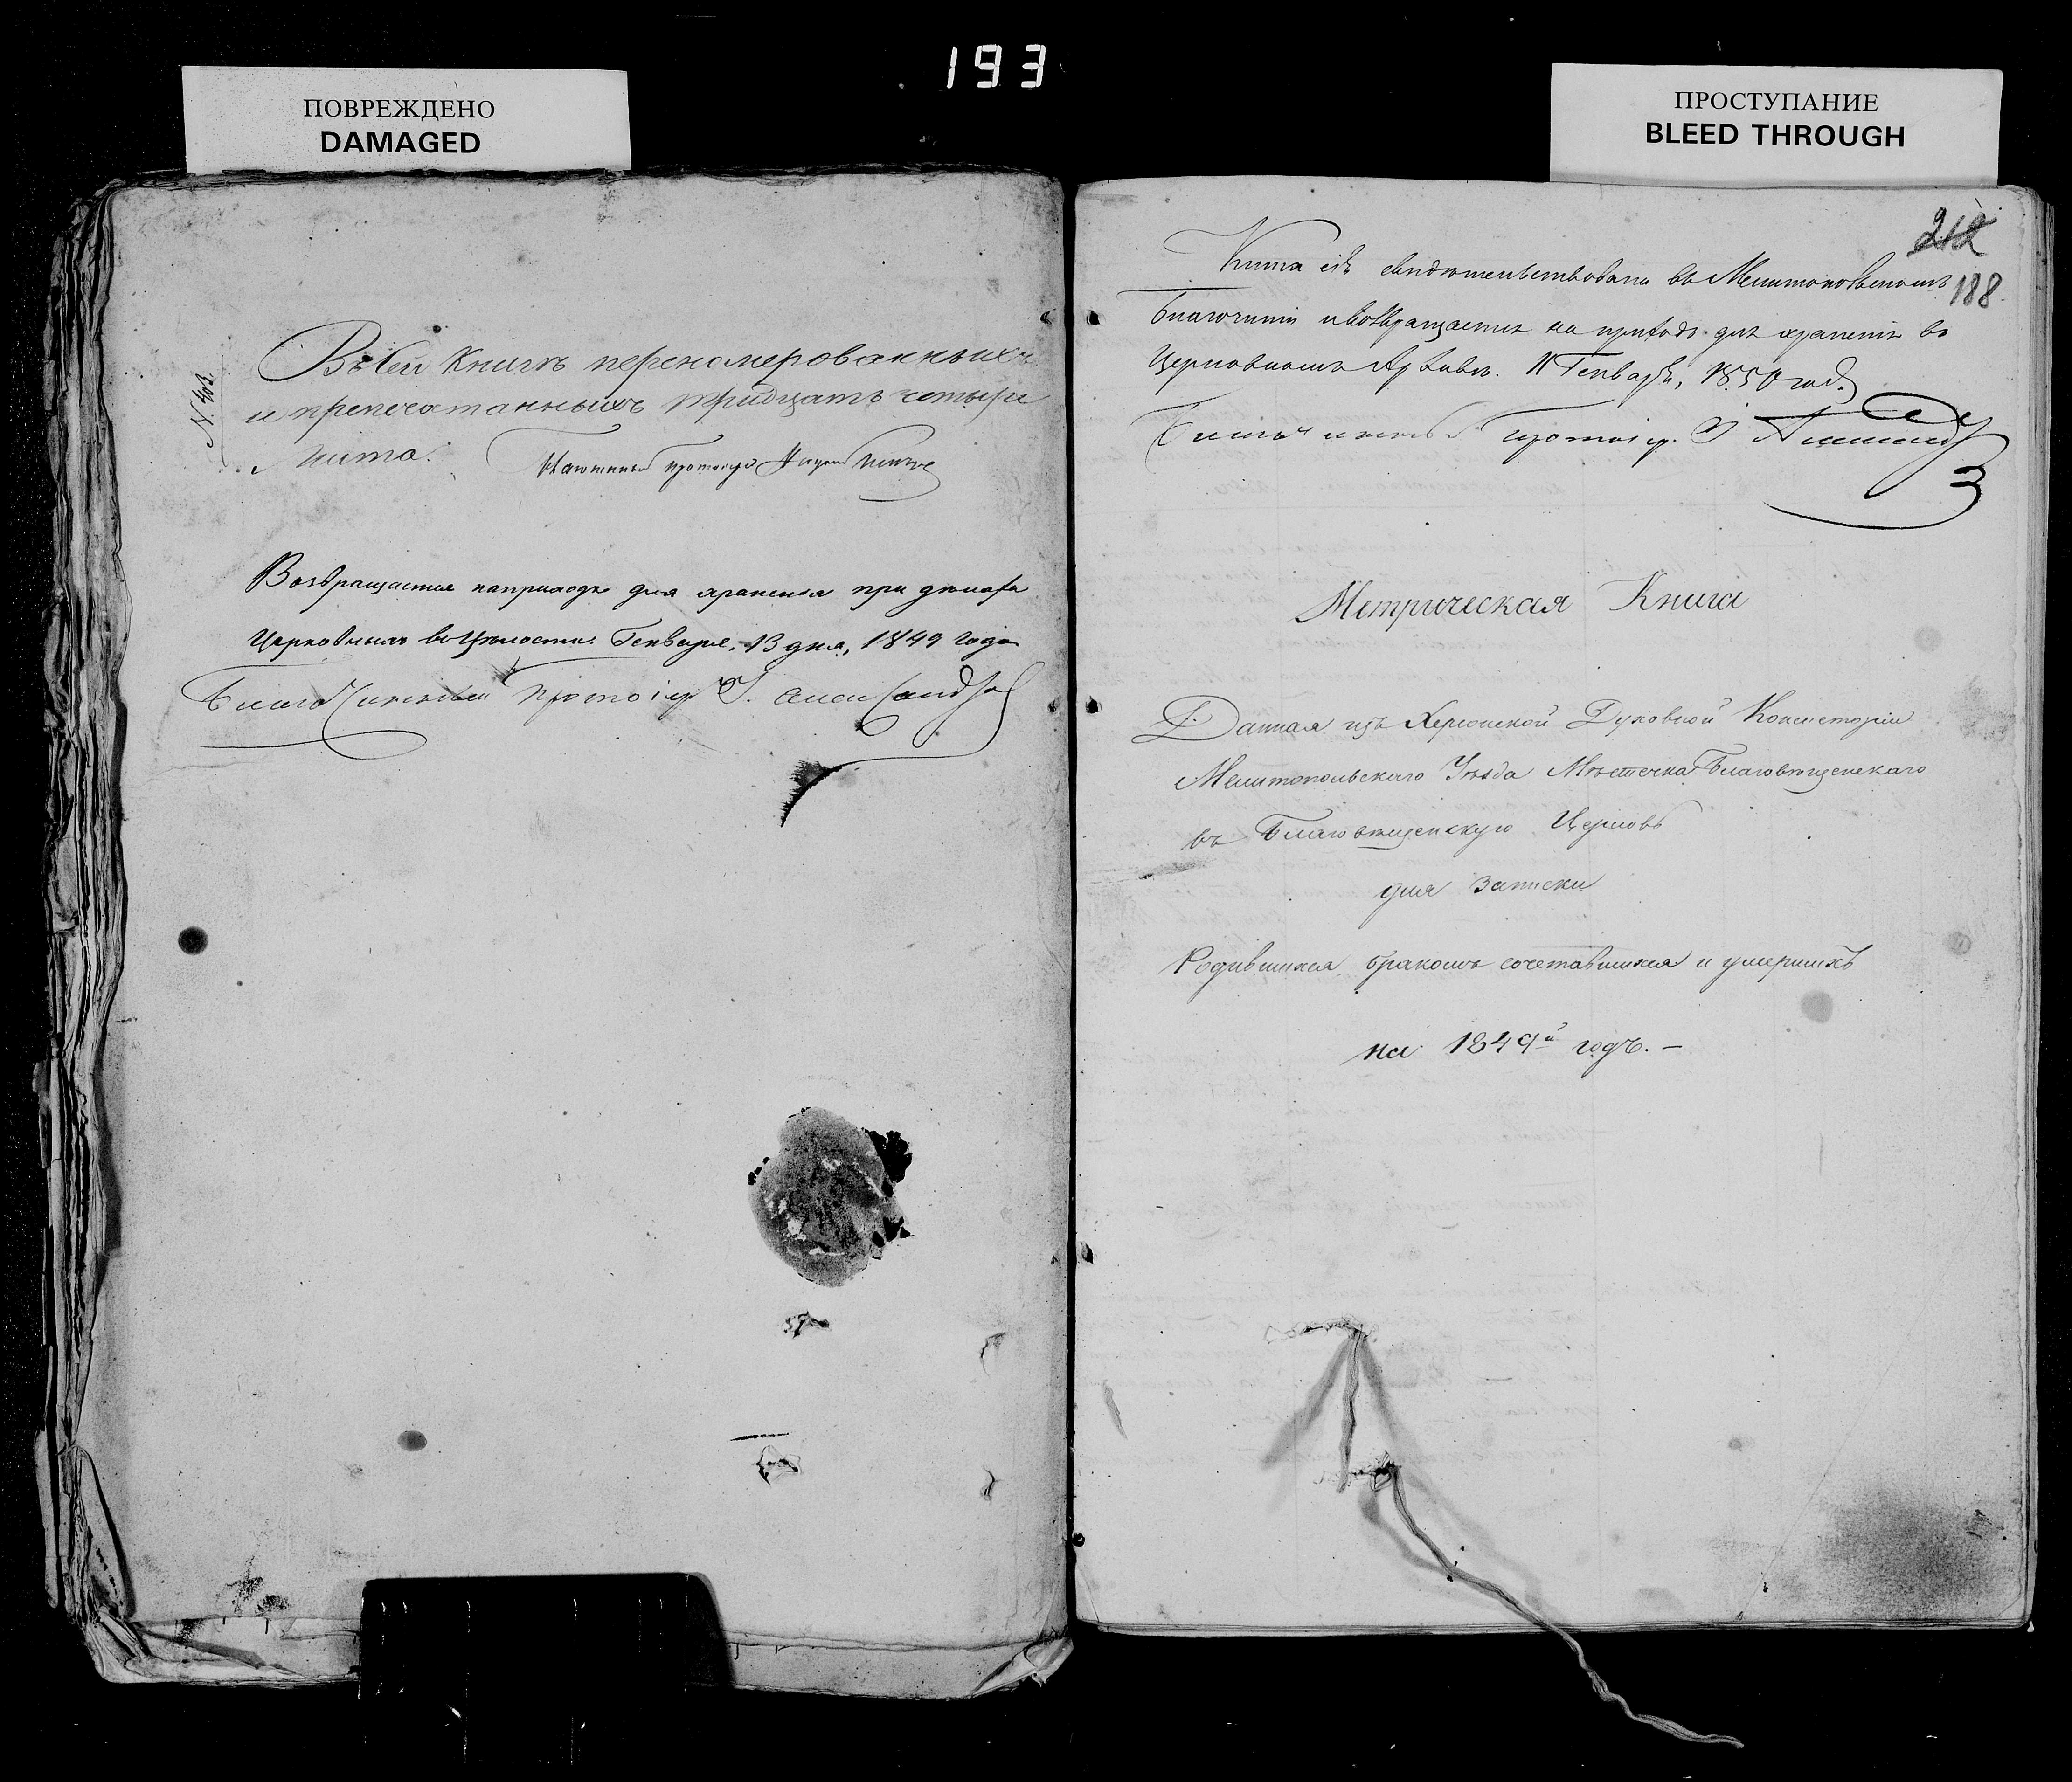 193
ПОВРЕЖДЕНО
DAMAGED
ПРОСТУПАНИЕ
BLEED THROUGH
N. 403.
Въ сей Книгѣ перенумерованныхъ
и препечатанныхъ тридцать четыре
листа.
Возвращается на приходъ для храненія при дѣлахъ
Церковныхъ въ цѣлости. Генваря, 13 дня, 1849 года
Благочинный Протоіер. І. Александров
212
188.
Книга сія свидѣтельствована въ Мелитопольскомъ
Благочиніи и возвращается на приходъ для храненія въ
Церковномъ Архивѣ. 11 Генваря, 1850 год.
Благочинный Протоіер. І
Метрическая Книга
Данная изъ Херсонской Духовной Консисторіи
Мелитопольскаго Уѣзда Мѣстечка Благовѣщенскаго
въ Благовѣщенскую Церковь
для записки
Родившихся бракомъ сочетавшихся и умершихъ
на 1849й годъ. —